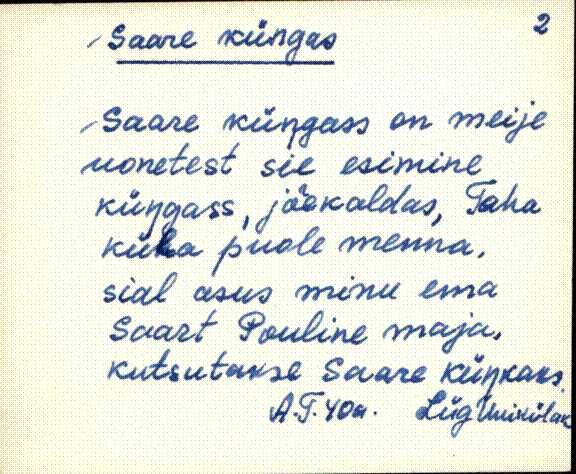 Saare küngas
2
Saare küŋgass on meije
uonetest sie esimine
küŋgass, jõekaldas, Taha
küla puole menna,
sial asus minu ema
Saart Pouline maja,
kutsutakse Saare küŋkaks.
A.T. 40a. Lüg